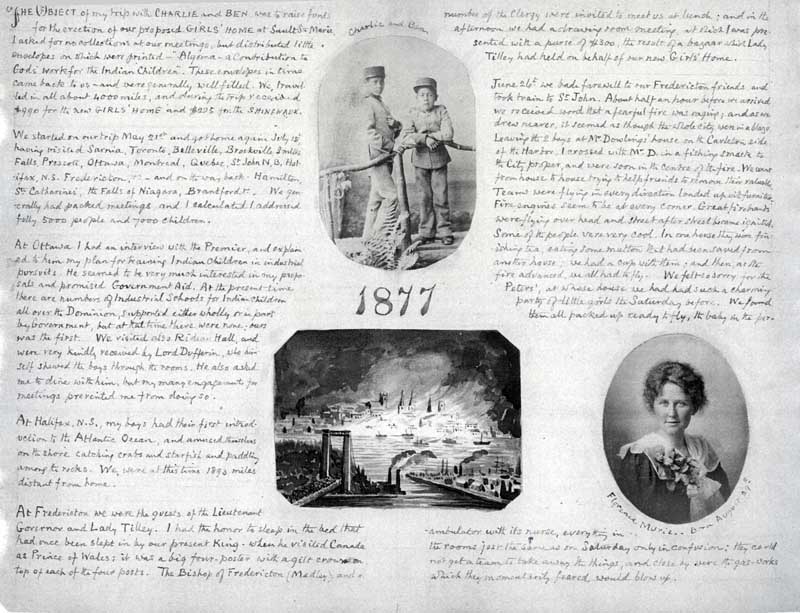 THE OBJECT of my trip with CHARLIE and BEN was to raise funds
for the erection of our proposed GIRLS' HOME at Sault Ste Marie.
I asked for no collections at our meetings, but distributed little
envelopes on which were printed "Algoma - a Contribution to
God's work for the Indian Children". These envelopes in time
came back to us - and were generally well filled. We travel-
led in all about 4000 miles, and during the trip received
$990 for the new GIRLS' HOME and $225 for the SHINGWAUK.
We started on our trip May 21st and got home again July 12th
having visited Sarnia, Toronto, Belleville, Brockville, Smiths
Falls, Prescott, Ottawa, Montreal, Quebec, St John N.B, Hal-
ifax, N.S. Fredericton, - and on the way back - Hamilton,
St Catharines, the Falls of Niagara, Brantford. We gen-
erally had packed meetings and I calculated I addressed
fully 5000 people and 7000 children.
At Ottawa I had an interview with the Premier, and explain-
ed to him my plan for training Indian Children in industrial
pursuits. He seemed to be very much interested in my propo-
sals and promised Government Aid. At the present time
there are numbers of Industrial Schools for Indian Children
all over the Dominion, supported either wholly or in part
by Government, but at that time there were none; ours
was the first. We visited also Rideau Hall, and
were very kindly received by Lord Dufferin, who him-
self shewed the boys through the rooms. He also asked
me to dine with him, but my many engagements for
meetings prevented me from doing so.
At Halifax, N.S., my boys had their first introd-
uction to the Atlantic Ocean, and amused themselves
on the shore catching crabs and starfish and paddling
among the rocks. We were at this time 1893 miles
distant from home.
At Fredericton we were the guests of the Lieutenant
Governor and Lady Tilley. I had the honor to sleep in the bed that
had once been slept in by our present King - when he visited Canada
as Prince of Wales; it was a big four-poster with a gilt crown on
top of each of the four posts. The Bishop of Fredericton (Medley) and a
Charlie and Ben
1877
number of the Clergy were invited to meet us at lunch; and in the
afternoon we had a drawing room meeting, at which I was pre-
sented with a purse of $300, the result of a bazaar which Lady
Tilley had held on behalf of our new Girls' Home.
June 26th we bade farewell to our Fredericton friends and
took train to St John. About half an hour before we arrived
we received word that a fearful fire was raging; and as we
drew nearer, it seemed as though the whole City were in a blaze.
Leaving the 2 boys at Mr Dowling's house on the Carleton side
of the Harbor, I crossed with Mr D. in a fishing smack to
the City proper, and were soon in the centre of the fire. We went
from house to house trying to help friends to remove their valuables
Teams were flying in every direction loaded up with furniture
Fire engines seem to be at every corner. Great firebrands
were flying over head and street after street became ignited.
Some of the people were very cool. In one house they were fin-
ishing tea, eating some mutton that had been saved from
another house; we had a cup with them; and then, as the
fire advanced, we all had to fly. We felt so sorry for the
Peters', at whose house we had had such a charming
party of little girls the Saturday before. We found
them all packed up ready to fly, the baby in the per-
ambulator with its nurse, everything in
the rooms just the same as on Saturday, only in confusion; they could
not get a team to take away the things, and close by were the gas-works
which they momentarily feared would blow up.
Marie